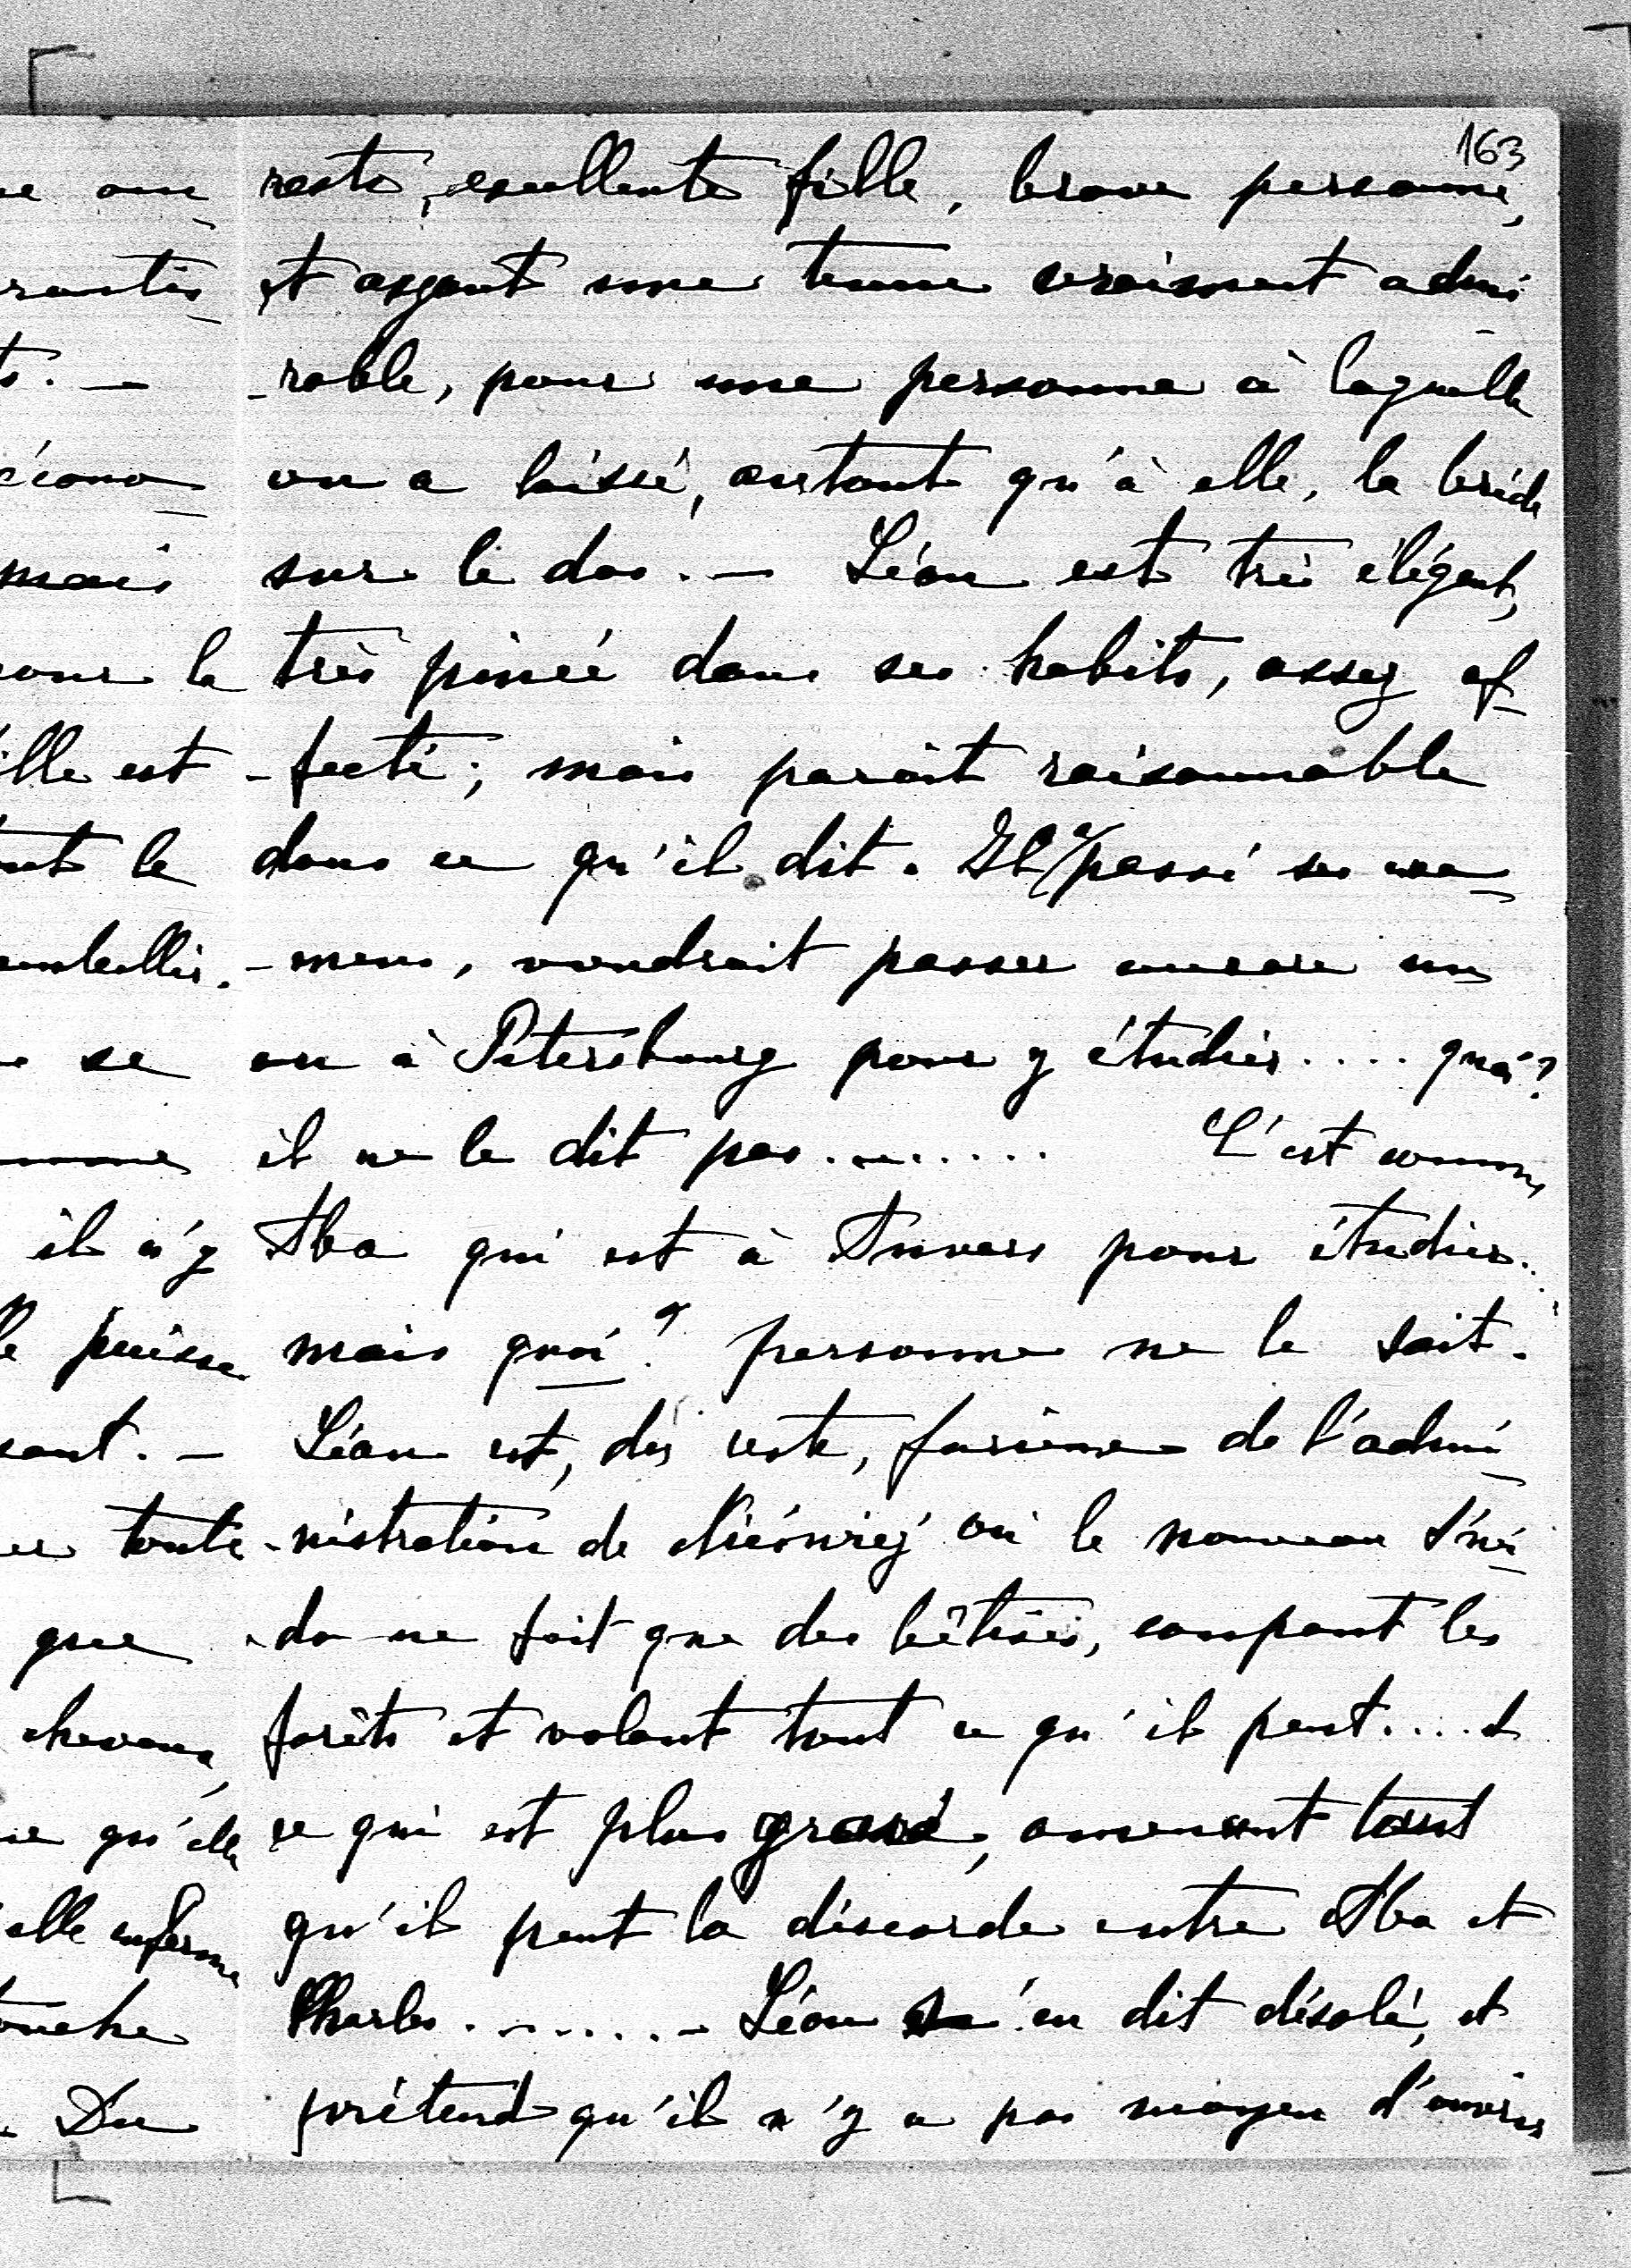 163
reste, excellente fille, brave personne,
et ayant une tenue vraiment admi
-rable, pour une personne à laquelle
on a laissé, autant qu'à elle, la bride
sur le dos. — Léon est très élégant,
très pincé dans ses habits, assez af-
-fecté; mais parait raisonnable
dans ce qu'il dit. Il a passé ses exa-
-mens, voudrait passer encore un
an à Pétersbourg pour y étudier .... quoi?
il ne le dit pas ........ C'est comme
Aba qui est à Anvers pour étudier...
mais quoi? personne ne le sait.
Léon est, du reste, furieux de l'admi-
-nistration de où le nouveau
-do ne fait que des bêtises, coupant les
forêts et volant tout ce qu'il peut .... et
ce qui est plus grave, amenant tant
qu'il peut la discorde entre Aba et
Charles ........ - Léon s'en dit désolé, et
prétend qu'il n'y a pas moyen d'ouvrir
il n'y
puisse
sant. —
toute
que
chevaux,
qu'elle
elle enferme
Du
mais
pour la
lle est
embellir.
se